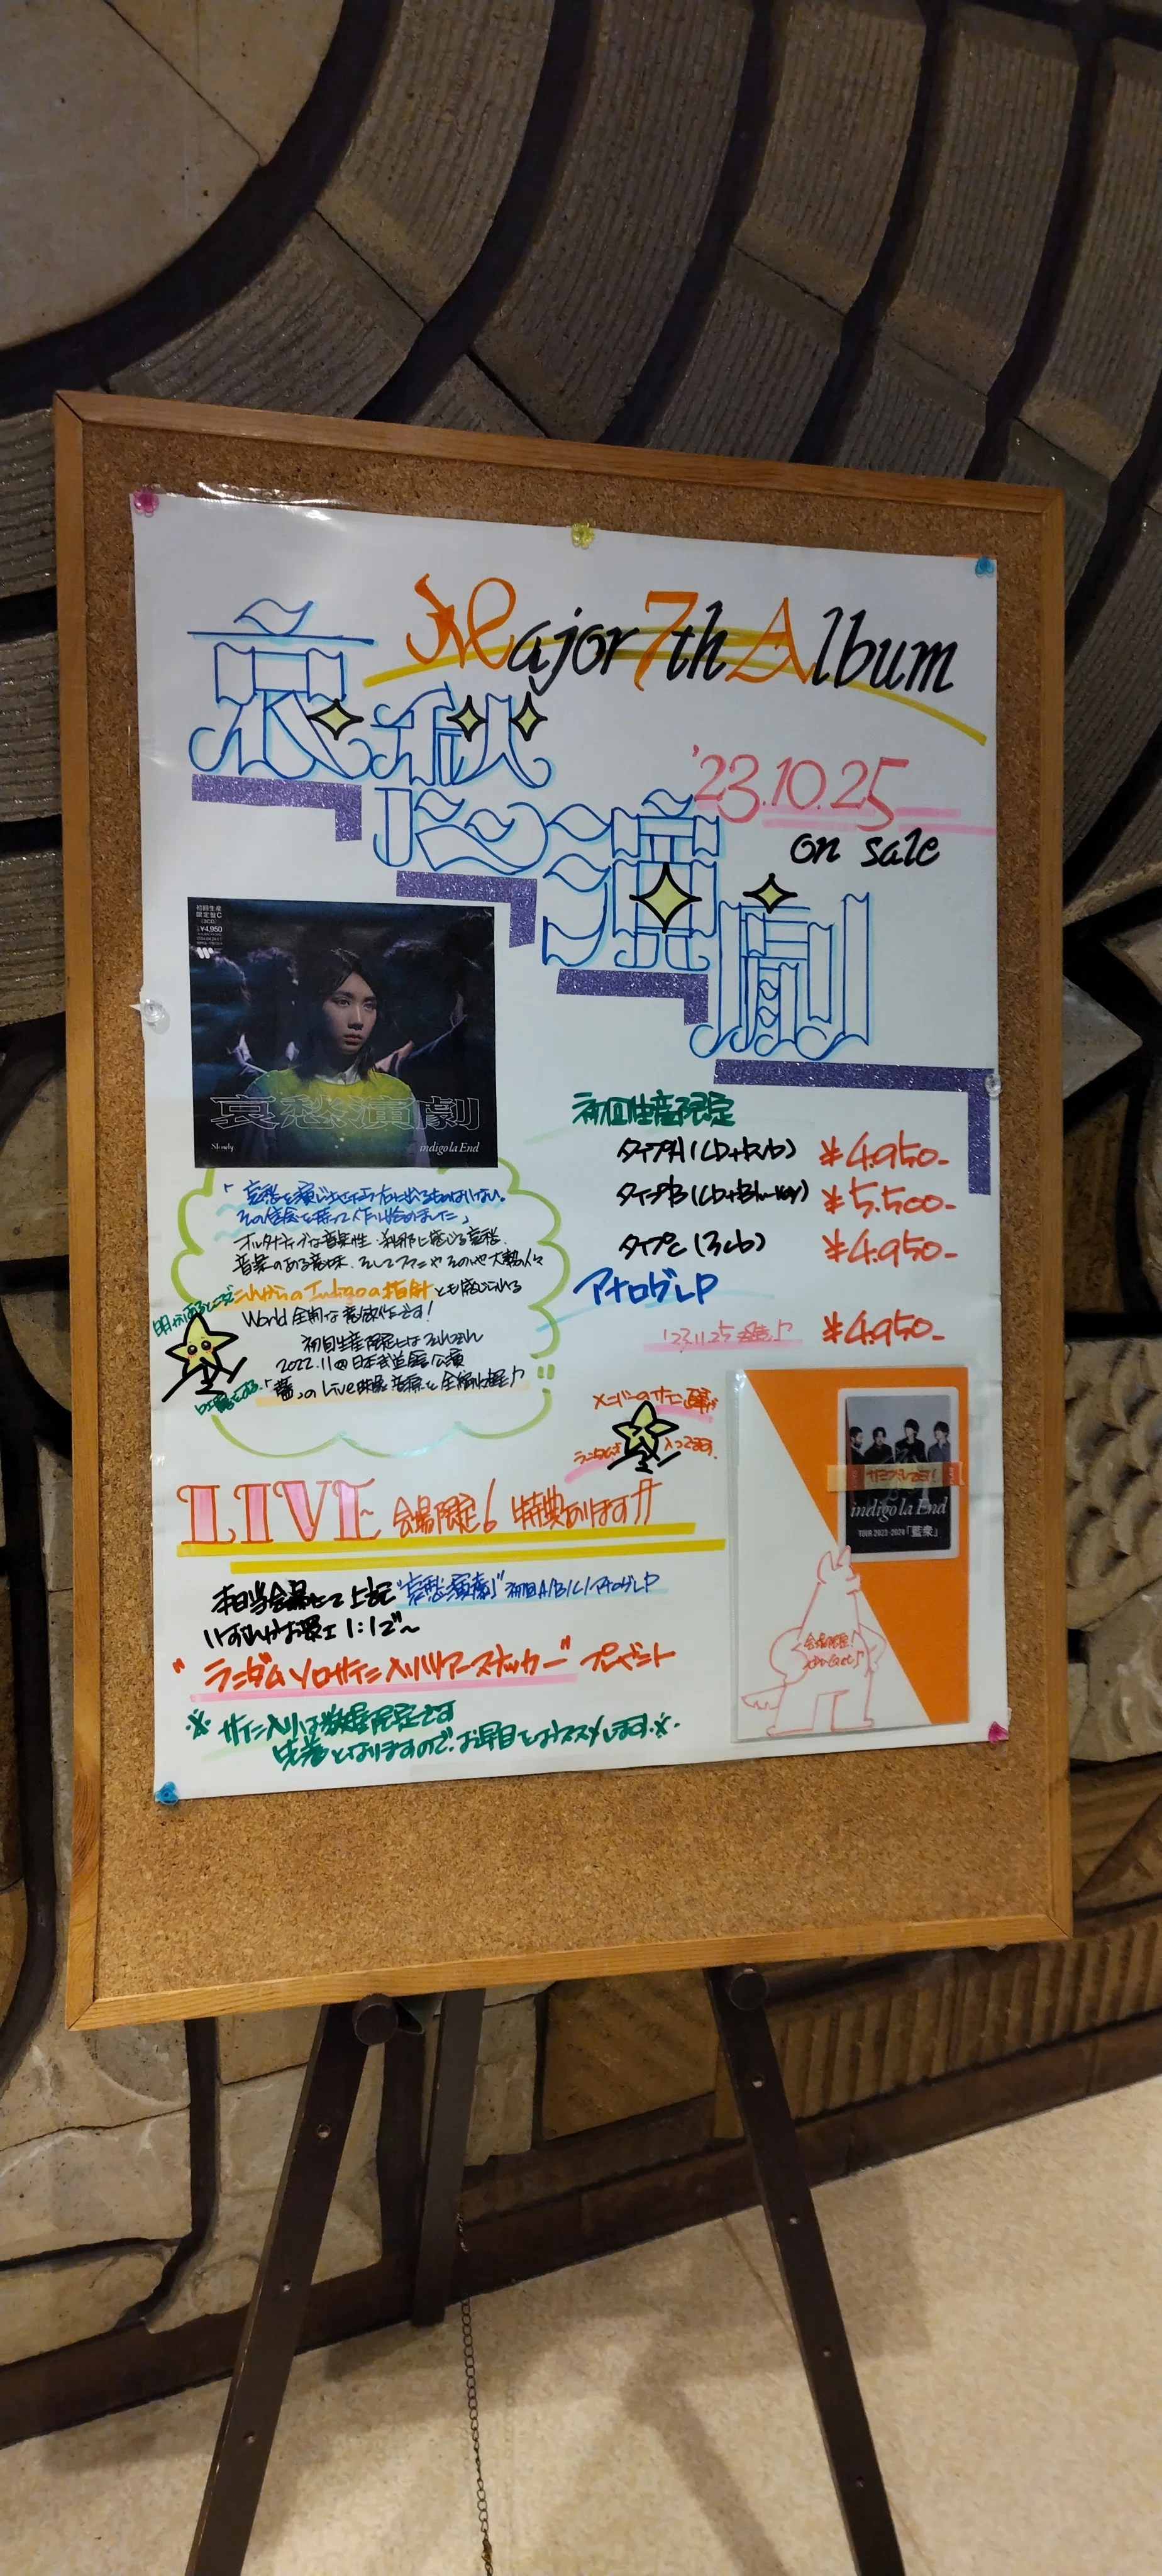 Major 7th Album
哀愁演劇
'23.10.25
on sale
初回生産
限定盤C
(3CD)
¥4,950
哀愁演劇
indigo la End
初回生産限定
タイプA (CD+DVD) ¥4.950-
タイプB (CD+Blu-ray) ¥5.500-
タイプC (3CD) ¥4.950-
アナログLP
'23.11.25発売♪ ¥4.950-
その信念を持って作り始めました」
オルタナティブな音楽性、刹那に感じる哀愁、
音楽のある意味、そしてファンやその他大勢の人々
これからのIndigoの指針とも感じられる
World全開な意欲作です!
初回生産限定にはそれぞれ
2022.11の日本武道館公演
「藍」のLive映像、音源を全編収録♪
メンバーのサイン直筆が
ランダムで入ってます。
LIVE 会場限定! 特典あります!!
本日当会場にて上記"哀愁演劇"初回A/B/C/アナログLP
いずれかお買上1:1で〜
"ランダムソロサイン入りツアーステッカー"プレゼント
※サイン入りは数量限定です
先着となりますので、お早目をおススメします※
サンプルです!
indigo la End
TOUR 2023-2024「藍衆」
会場限定!